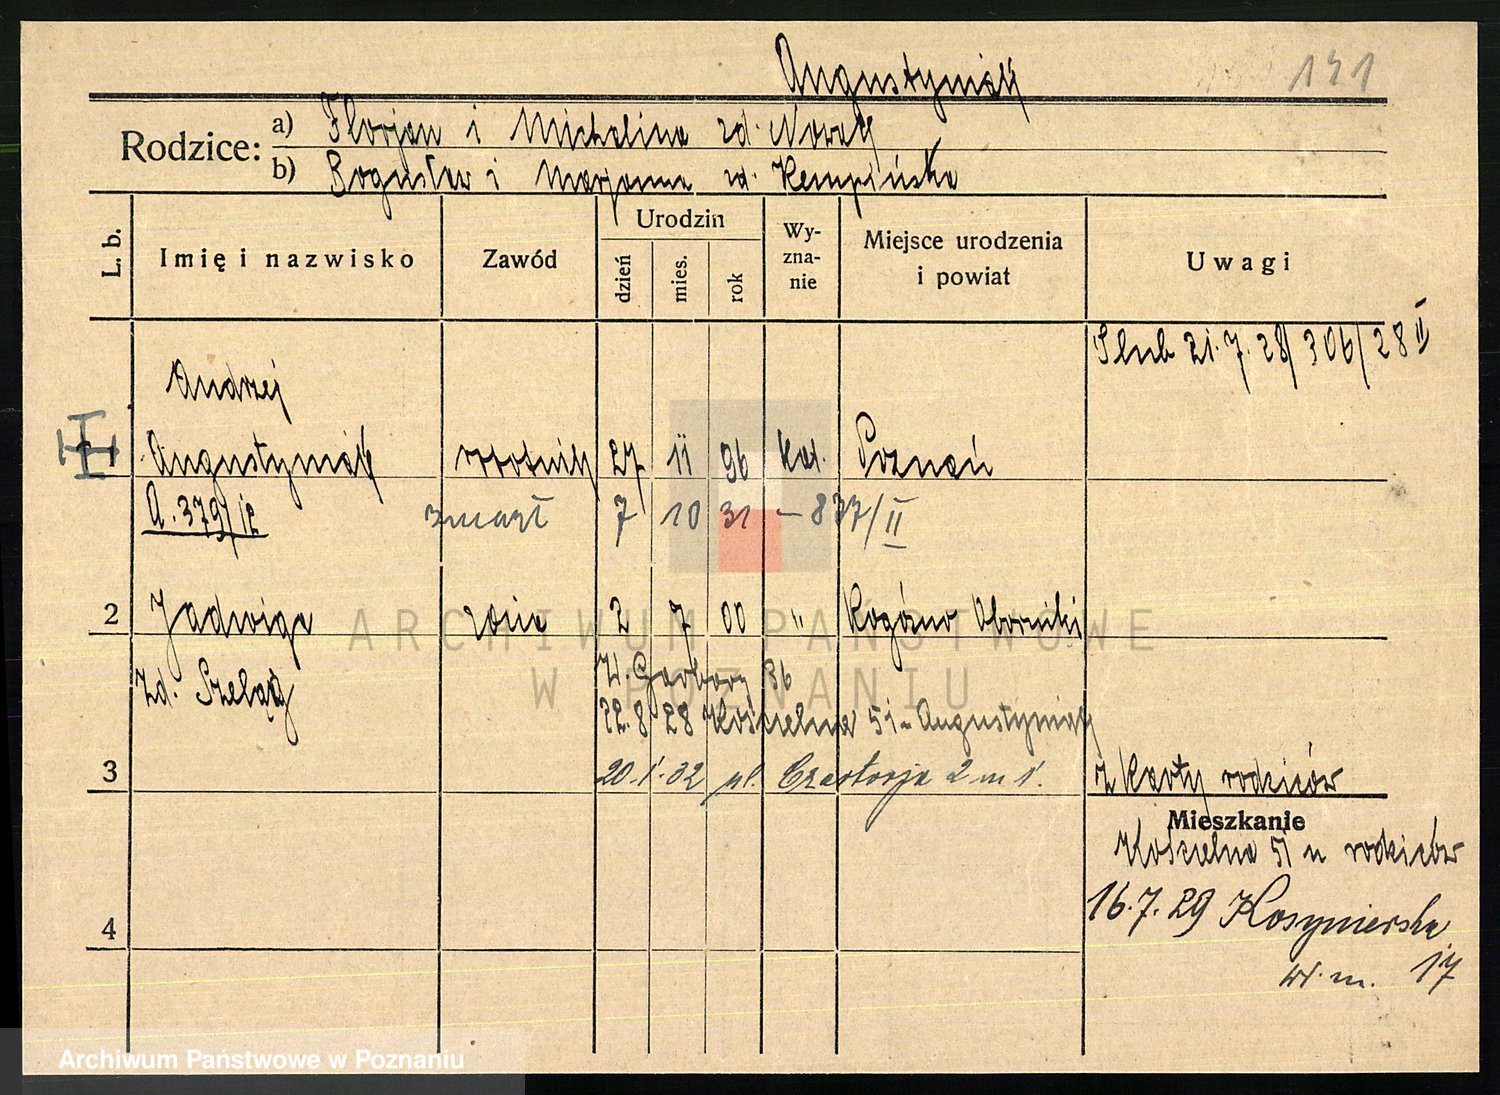 Augustyniak 141
Rodzice: a) Florjan i Michalina zd. Nowak
b) Bogusław i Marjanna zd. Kempińska
L. b. Imię i nazwisko Zawód Urodzin dzień mies. rok Wy-zna-nie Miejsce urodzenia i powiat Uwagi
Slub 21.7.28/306/28 II
Andrzej
1 Augustyniak robotnik 27 11 96 kat. Poznań
A. 379/ zmarł 7 10 31 – 837/II
2 Jadwiga żona 2 7 00 " Rogóźno Oborniki
zd. Szeląg W. Garbary 36
22.8 28 Kościelna 51 u Augustyniak
3 20.1.32 pl. Czartorja 2 m 1. z karty rodziców
Mieszkanie
Kościelna 51 u rodziców
4 16.7.29 Kosynierska
m. 17
ARCHIWUM PAŃSTWOWE
W POZNANIU
Archiwum Państwowe w Poznaniu